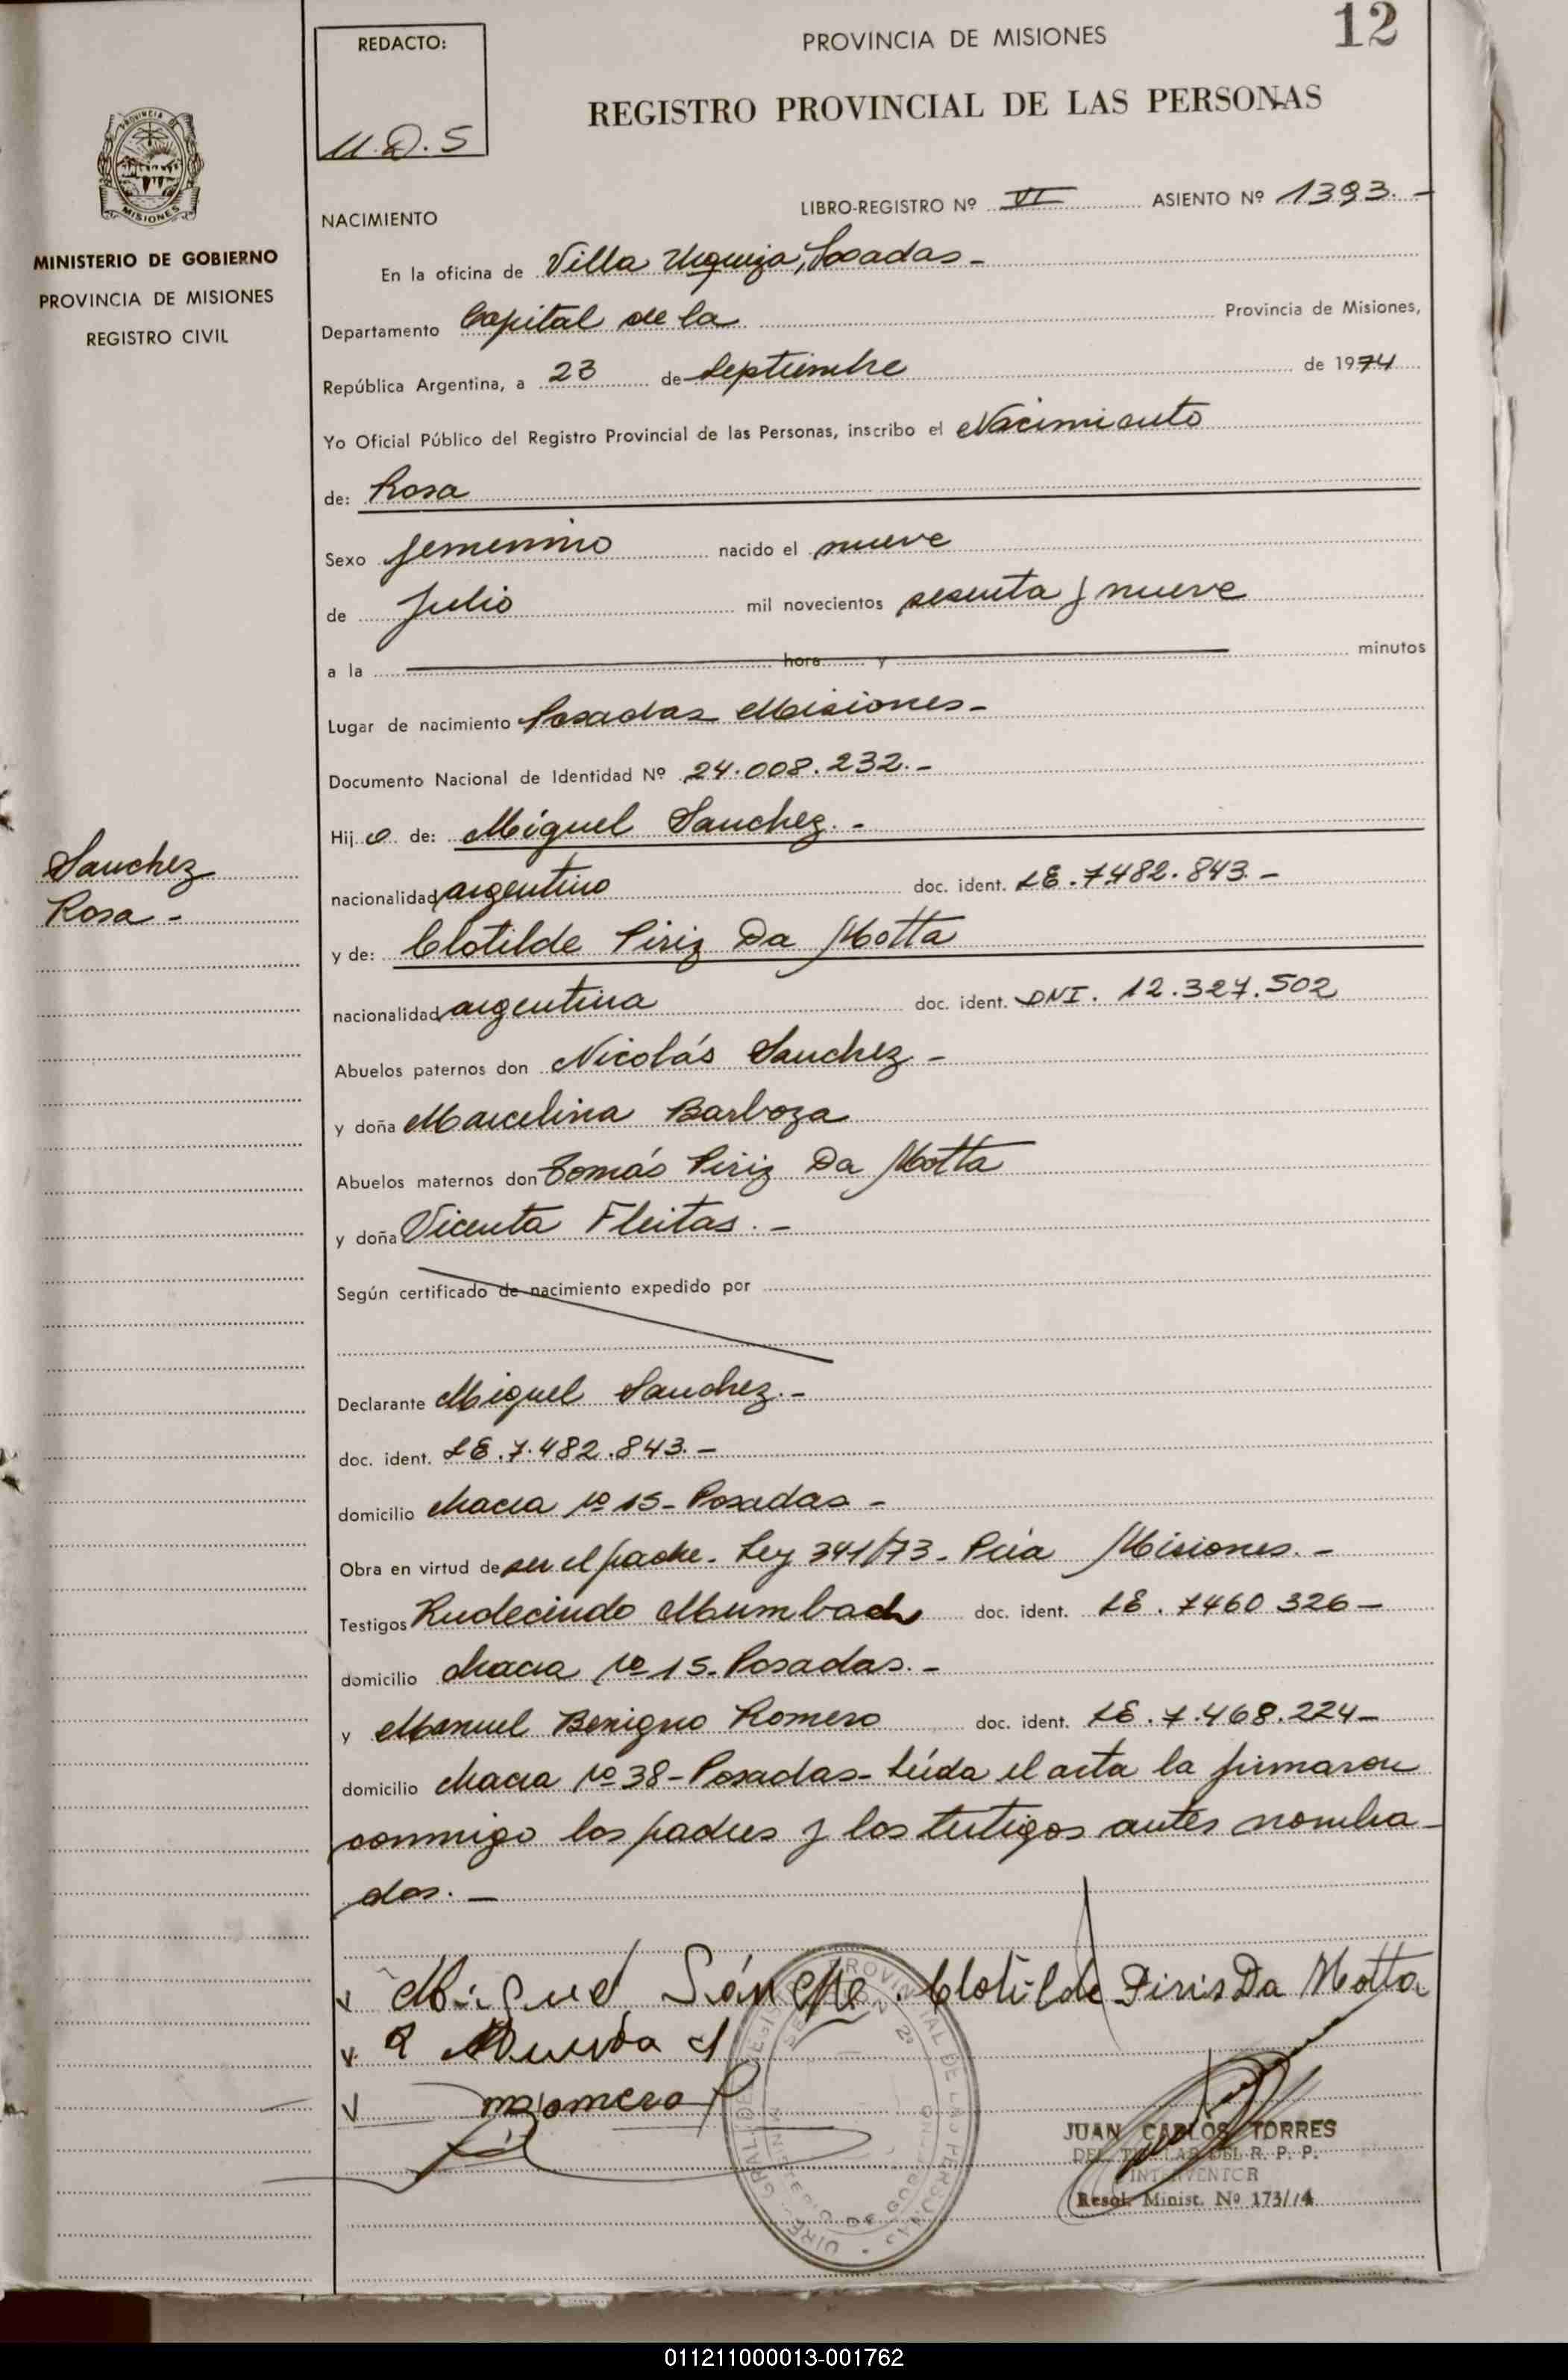 12
REDACTO:
M.D.S
PROVINCIA DE MISIONES
REGISTRO PROVINCIAL DE LAS PERSONAS
PROVINCIA DE
MISIONES
MINISTERIO DE GOBIERNO
PROVINCIA DE MISIONES
REGISTRO CIVIL
NACIMIENTO
LIBRO-REGISTRO Nº VI ASIENTO Nº 1393.-
En la oficina de Villa Urquiza, Posadas-
Departamento Capital de la Provincia de Misiones,
República Argentina, a 23 de Septiembre de 1974
Yo Oficial Público del Registro Provincial de las Personas, inscribo el Nacimiento
de: Rosa
Sexo femenino nacido el nueve
de Julio mil novecientos sesenta y nueve
a la hora y minutos
Lugar de nacimiento Posadas Misiones-
Documento Nacional de Identidad Nº 24.008.232.-
Hij a de: Miguel Sanchez.-
Sanchez
Rosa-
nacionalidad argentino doc. ident. LE.7.482.843.-
y de: Clotilde Piriz Da Motta
nacionalidad argentina doc. ident. DNI. 12.327.502
Abuelos paternos don Nicolás Sanchez-
y doña Marcelina Barboza
Abuelos maternos don Tomás Piriz Da Motta
y doña Vicenta Fleitas.-
Según certificado de nacimiento expedido por
Declarante Miguel Sanchez.-
doc. ident. LE.7.482.843.-
domicilio Chacra Nº 15-Posadas-
Obra en virtud de ser el padre. Ley 341/73-Pcia Misiones.-
Testigos Rudecindo Mumbach doc. ident. LE. 7460 326-
domicilio Chacra Nº 15-Posadas.-
y Manuel Benigno Romero doc. ident. LE.7.468.224-
domicilio Chacra Nº 38-Posadas-Leída el acta la firmaron
conmigo los padres y los testigos antes nombra-
dos.-
Miguel Sánche. Clotilde Piris Da Motta
JUAN CARLOS TORRES
DEL. TITULAR DEL R. P. P.
INTERVENTOR
Resol. Minist. Nº 173/74
011211000013-001762